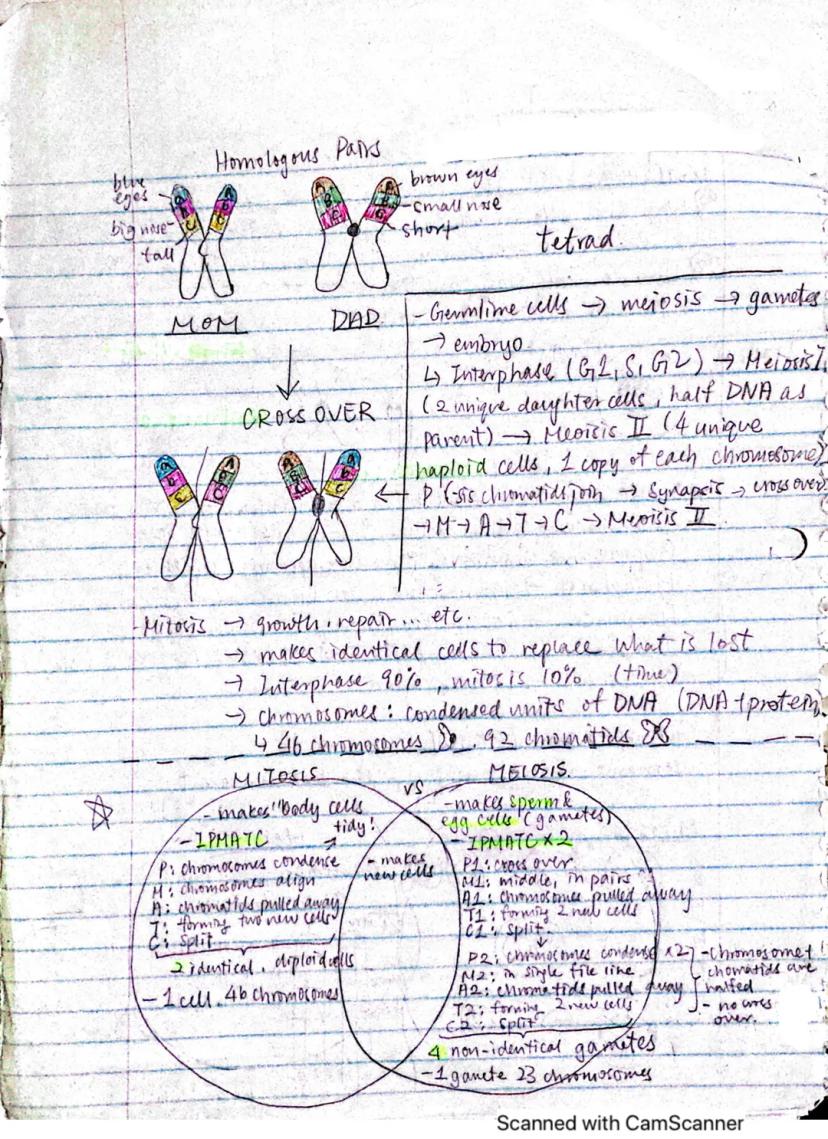 Homologous Pairs
blue eyes
big nose
tall
brown eyes
small nose
short
tetrad.
MOM
DAD
CROSS OVER
- Germline cells → meiosis → gametes
→ embryo
↳ Interphase (G1, S, G2) → Meiosis I
(2 unique daughter cells, half DNA as
parent) → Meoisis II (4 unique
haploid cells, 1 copy of each chromosome)
← P (-sis chromatids join → synapsis → cross over
→ M → A → T → C → Meoisis II
)
- Mitosis → growth, repair... etc.
→ makes identical cells to replace what is lost
→ Interphase 90%, mitosis 10% (time)
→ chromosomes: condensed units of DNA (DNA + protein
↳ 46 chromosomes, 92 chromatids
MITOSIS
vs
MEIOSIS
- makes "body cells
tidy!
- IPMATC
P: chromosomes condense
M: chomosomes align
A: chromatids pulled away
T: forming two new cells
C: split
2 identical, diploid cells
- 1 cell 46 chromosomes
- makes
new cells
- makes sperm &
egg cells (gametes)
- IPMATC x 2
P1: cross over
M1: middle, in pairs
A1: chromosomes pulled away
T1: forming 2 new cells
C1: split
P2: chromosomes condense x2
M2: in single file line
A2: chromatids pulled away
T2: forming 2 new cells
C2: split
- chromosome +
chomatids are
halfed
- no cross
over.
4 non-identical gametes
- 1 gamete 23 chromosomes
Scanned with CamScanner